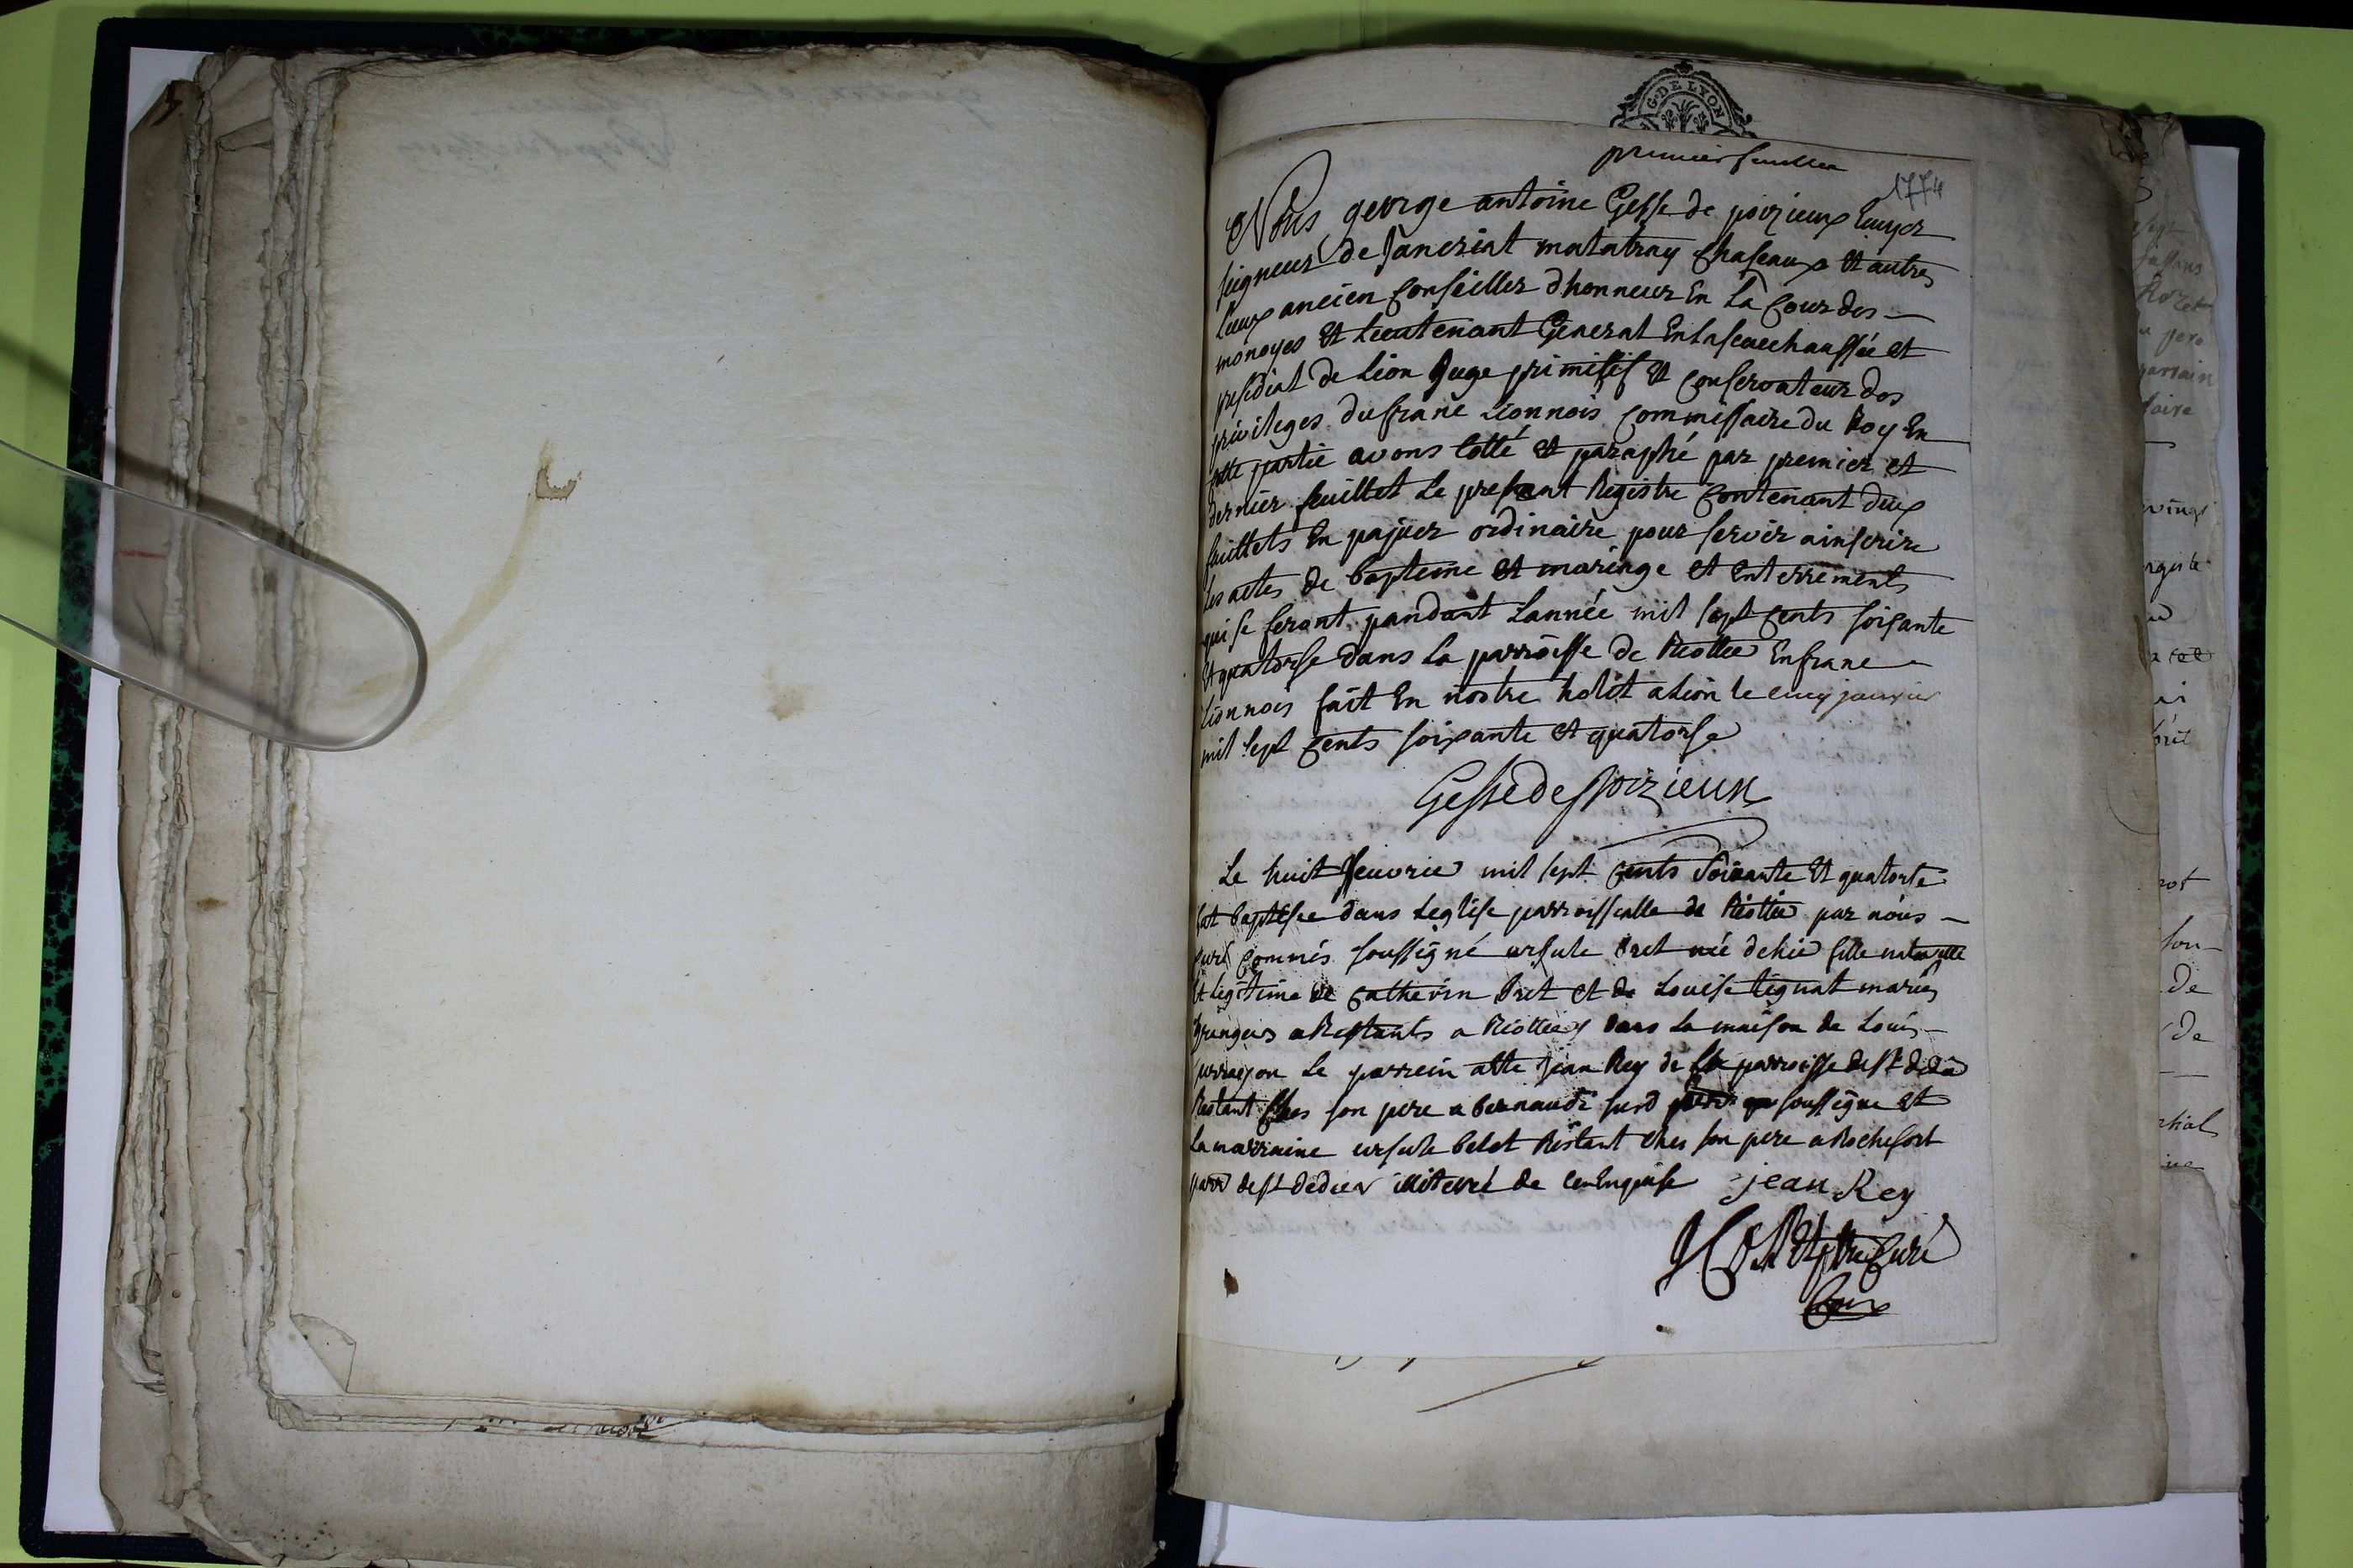 G. DE LYON
premier feuillet
1774
Nous george antoine Gesse de poizieux Ecuyer
seigneur de Janeriat matatray Chaseaux et autres
lieux ancien Conseiller dhonneur En La Cour des
monoyes et Lieutenant General En la seneechaussée et
presidial de Lion Juge primitif et Conservateur des
privileges du franc Lionnois Commissaire du Roy En
cette partie avons Cotté et paraphé par premier et
dernier feuillet Le present Registre Contenant dix
feuillets En papier ordinaire pour servir a inscrire
Les actes de bapteme et mariage et enterrements
qui se feront pandant Lannée mil sept cents soisante
et quatorse dans La parroisse de Riottier En franc
Lionnois fait En nostre hotel a Lion le cinq janvier
mil sept cents soixante et quatorse
Gesse de Poizieux
Le huit feuvrier mil sept cents Soixante et quatorse
fut baptisée dans Leglise parroissialle de Riottier par nous
curé Commis soussigné ursule bret née dehier fille naturelle
et Legitime de Catherin bret et de Louise tignat mariés
grangers a Restants a Riottier dans La maison de Louis
Le parrein atte Jean Rey de La parroisse de st didier
Restant Ches son pere a soussigne et
La marraine ursule belet Restant Ches son pere a Rochefort
parr de st didier illiterée de ce Enquise jean Rey
curé